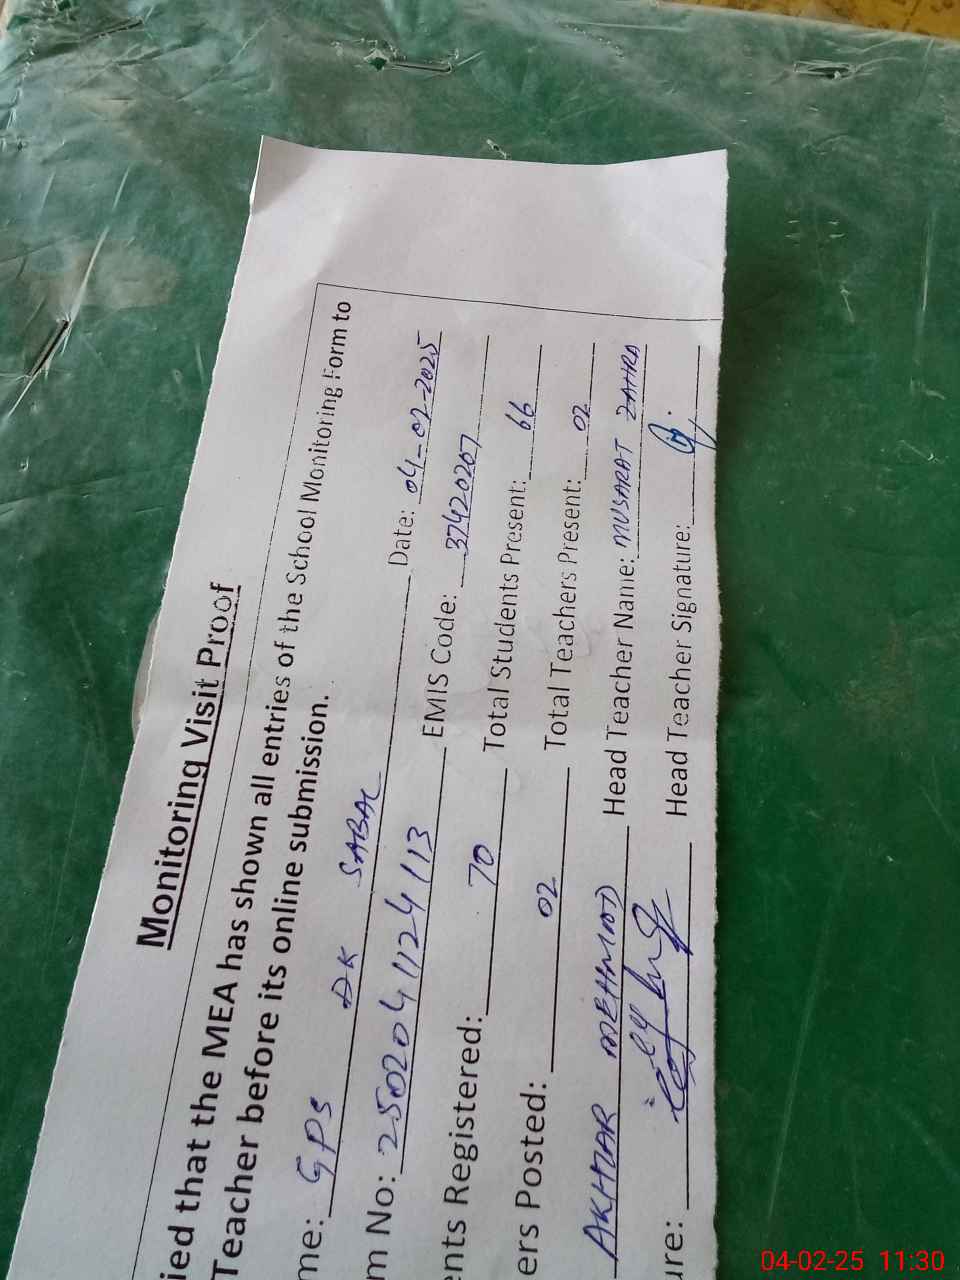 Monitoring Visit Proof
ied that the MEA has shown all entries of the School Monitoring Form to
Teacher before its online submission.
me: GPS DK SABAL Date: 04-02-2025
m No: 2502041124113 EMIS Code: 37420207
ents Registered: 70 Total Students Present: 66
ers Posted: 02 Total Teachers Present: 02
AKHTAR MEHMOOD Head Teacher Name: MUSARAT ZAHRA
ure: Head Teacher Signature:
04-02-25 11:30